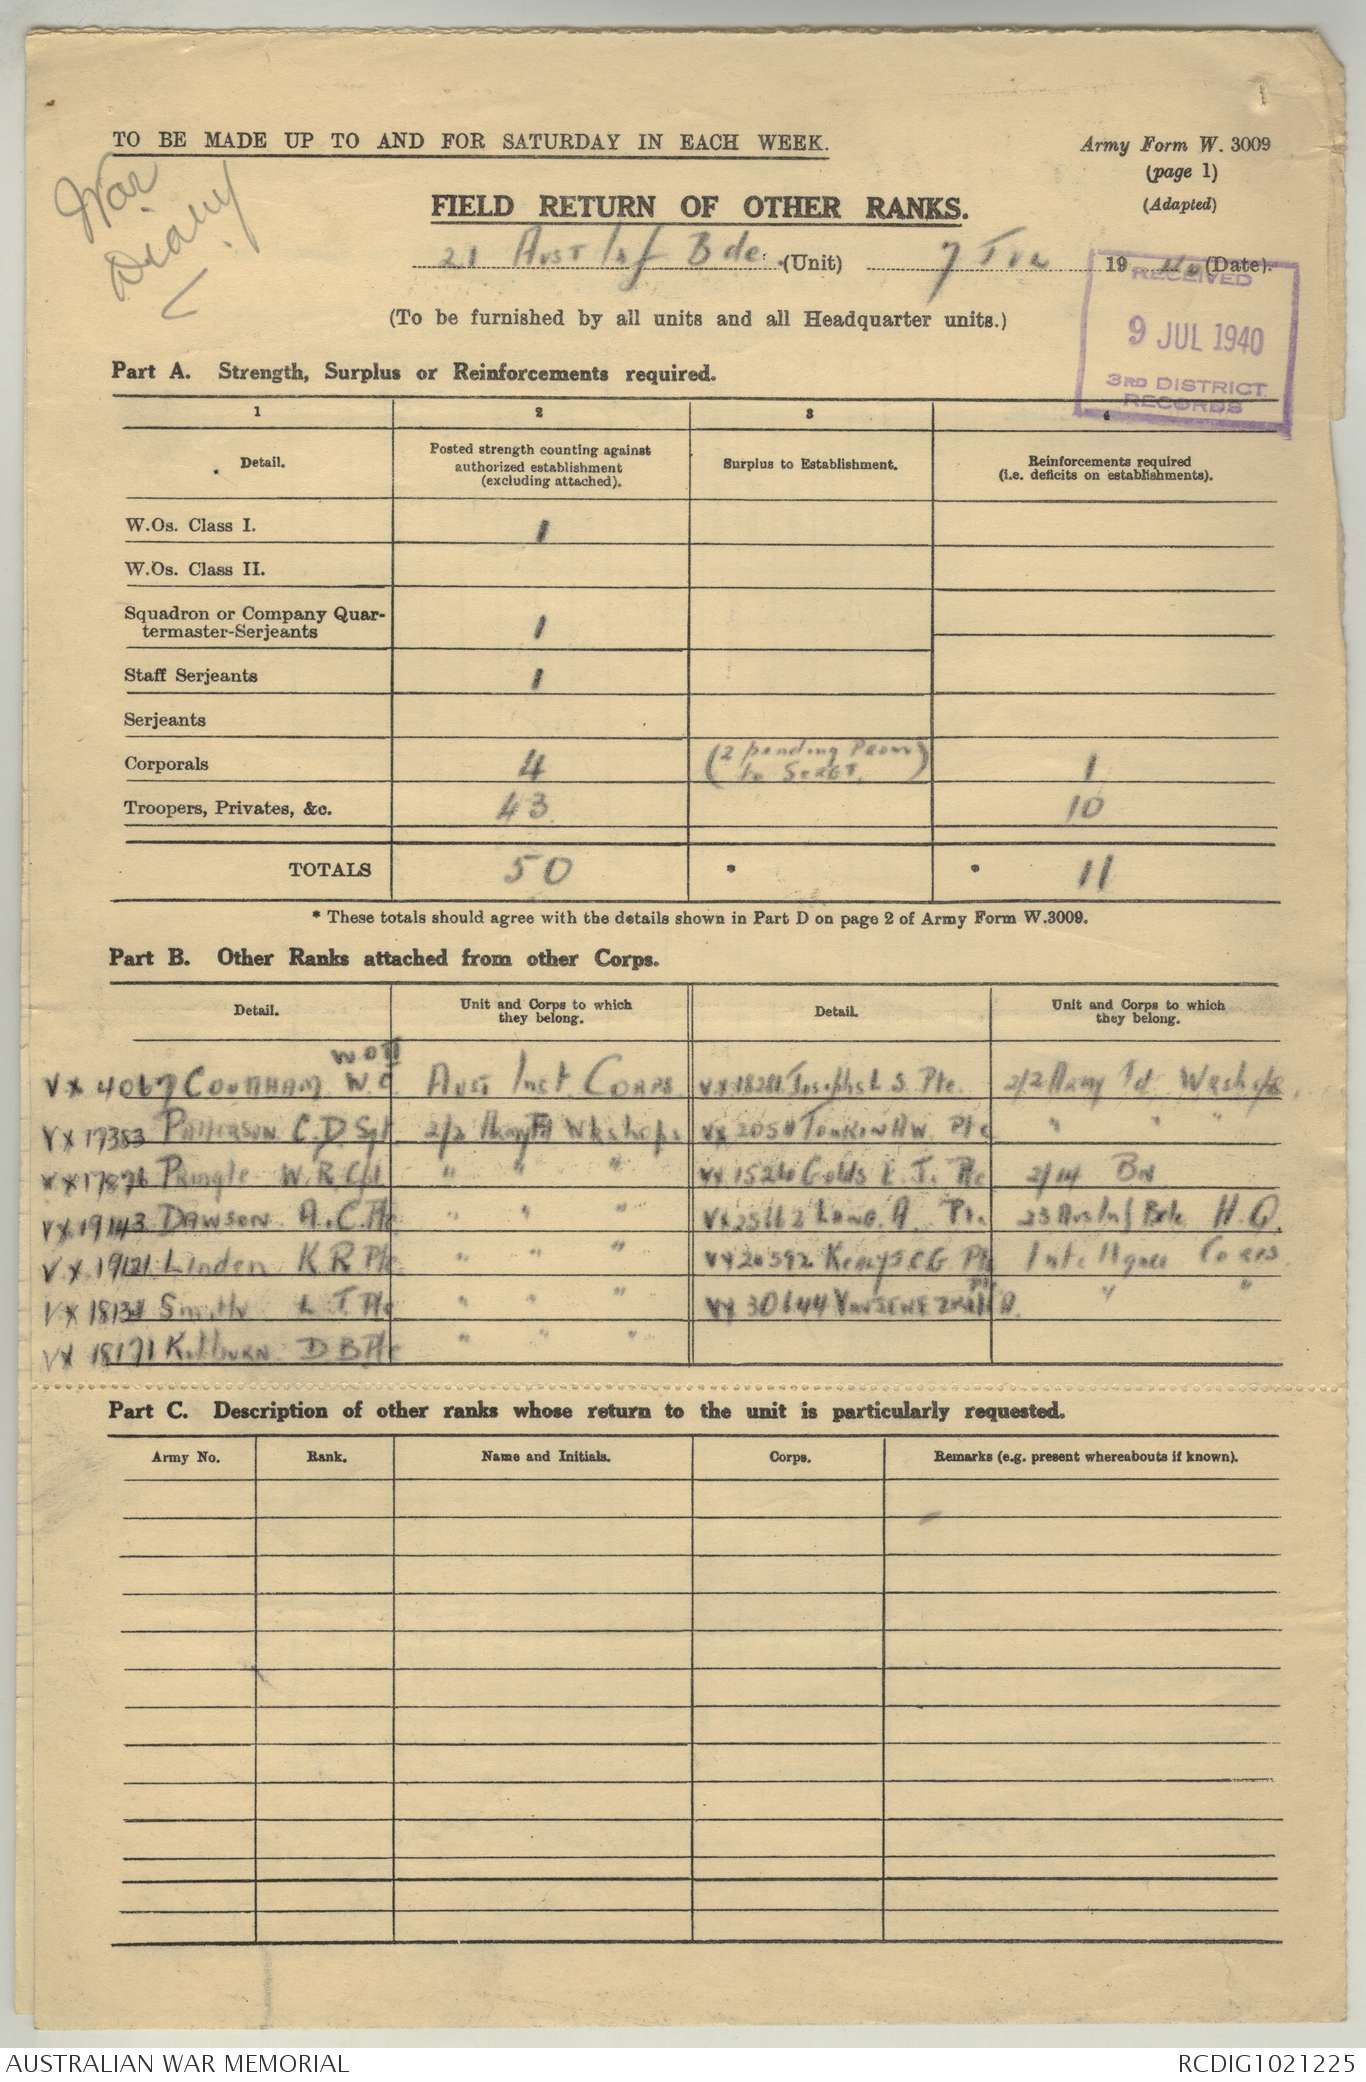 TO BE MADE UP TO AND FOR SATURDAY IN EACH WEEK.
Army Form W. 3009
(page 1)
(Adapted)
War
Diary
FIELD RETURN OF OTHER RANKS.
21 Aust Inf Bde. (Unit) 7 19 40 (Date).
RECEIVED
9 JUL 1940
3RD DISTRICT
RECORDS
(To be furnished by all units and all Headquarter units.)
Part A. Strength, Surplus or Reinforcements required.
1 2 3 4
Detail. Posted strength counting against authorized establishment (excluding attached). Surplus to Establishment. Reinforcements required (i.e. deficits on establishments).
W.Os. Class I. 1
W.Os. Class II.
Squadron or Company Quar-
termaster-Serjeants 1
Staff Serjeants 1
Serjeants
Corporals 4 (2 pending Prom to Sergt.) 1
Troopers, Privates, &c. 43 10
TOTALS 50 * * 11
* These totals should agree with the details shown in Part D on page 2 of Army Form W.3009.
Part B. Other Ranks attached from other Corps.
Detail. Unit and Corps to which they belong. Detail. Unit and Corps to which they belong.
WOII
VX 4067 W.C Aust Inst Corps VX18281 Josephs L S. Pte. 2/2 Army Fd Wkshops
VX 17383 Patterson C.D Sgt 2/2 Army Fd Wkshops Tonkin H W. Pte " " "
Pringle W.R Cpl " " " Golds L. J. Pte 2/14 Bn
VX 19143 Dawson A.C. Pte " " " Lang. A. Pte. 23 Aust Inf Bde H.Q.
VX 19121 Linden K R Pte " " " VX20592 C G Pte Intelligence Corps
Smith L T. Pte " " " VX 30644 Pte " "
VX 18171 Kilburn D B Pte " " "
Part C. Description of other ranks whose return to the unit is particularly requested.
Army No. Rank. Name and Initials. Corps. Remarks (e.g. present whereabouts if known).
AUSTRALIAN WAR MEMORIAL
RCDIG1021225